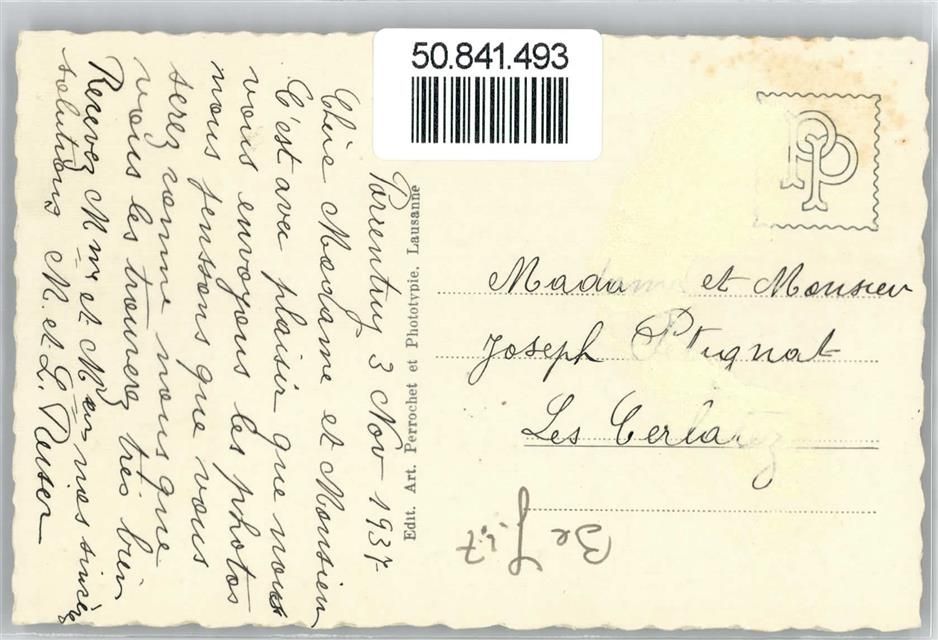 50.841.493
Porrentruy 3 Nov 1937
Chère Madame et Monsieur
C'est avec plaisir que nous
vous envoyons les photos
nous pensons que vous
serez comme nous que
vous les trouverez très bien
Recevez Mme et Mr nos sincère
salutations M. et L.
Edit. Art. Perrochet et Phototypie. Lausanne
PP
Madame et Monsieur
Joseph Petignat
Les Cerlatez